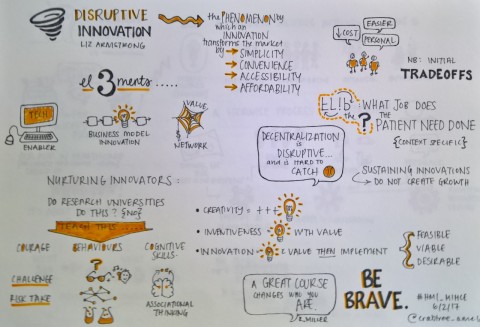 DISRUPTIVE
INNOVATION
LIZ ARMSTRONG
the PHENOMENON by
which an
INNOVATION
transforms the market
by → SIMPLICITY
→ CONVENIENCE
→ ACCESSIBILITY
→ AFFORDABILITY
↓COST
EASIER
PERSONAL
NB: INITIAL
TRADEOFFS
el 3 ments .....
TECH
ENABLER
BUSINESS MODEL
INNOVATION
VALUE
NETWORK
DECENTRALIZATION
is
DISRUPTIVE...
and is HARD to
CATCH
the ? : WHAT JOB DOES
THE
PATIENT NEED DONE
{CONTEXT SPECIFIC}
SUSTAINING INNOVATIONS
→ DO NOT CREATE GROWTH
NURTURING INNOVATORS:
DO RESEARCH UNIVERSITIES
DO THIS? {NO}
TEACH THIS .....
COURAGE
BEHAVIOURS
COGNITIVE
SKILLS
CHALLENGE
RISK TAKE
?
ASSOCIATIONAL
THINKING
• CREATIVITY = +++
• INVENTIVENESS WITH VALUE
• INNOVATION = & VALUE THEN IMPLEMENT
FEASIBLE
VIABLE
DESIRABLE
A GREAT COURSE
CHANGES WHO YOU
ARE.
R. MILLER
BE
BRAVE.
6/2/17